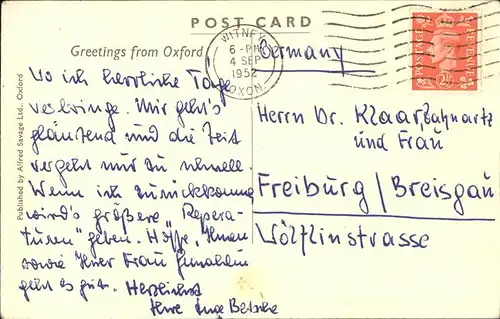 POST CARD
Greetings from Oxford
WITNEY
6 - PM
4 SEP
1952
OXON.
POSTAGE
REVENUE
Germany
Wo ich herrliche Tage
verbringe. Mir geht's
glänzend und die Zeit
vergeht nur zu schnell.
Wenn ich zurückkomme
wird's größere „Repera-
turen" geben. Hoffe, Ihnen
sowie Ihrer Frau Gemahlin
geht es gut. Herzlichst
Ihre Inge
Herrn Dr. Klaar, Zahnartz
und Frau
Freiburg / Breisgau
Wölflinstrasse
Published by Alfred Savage Ltd., Oxford